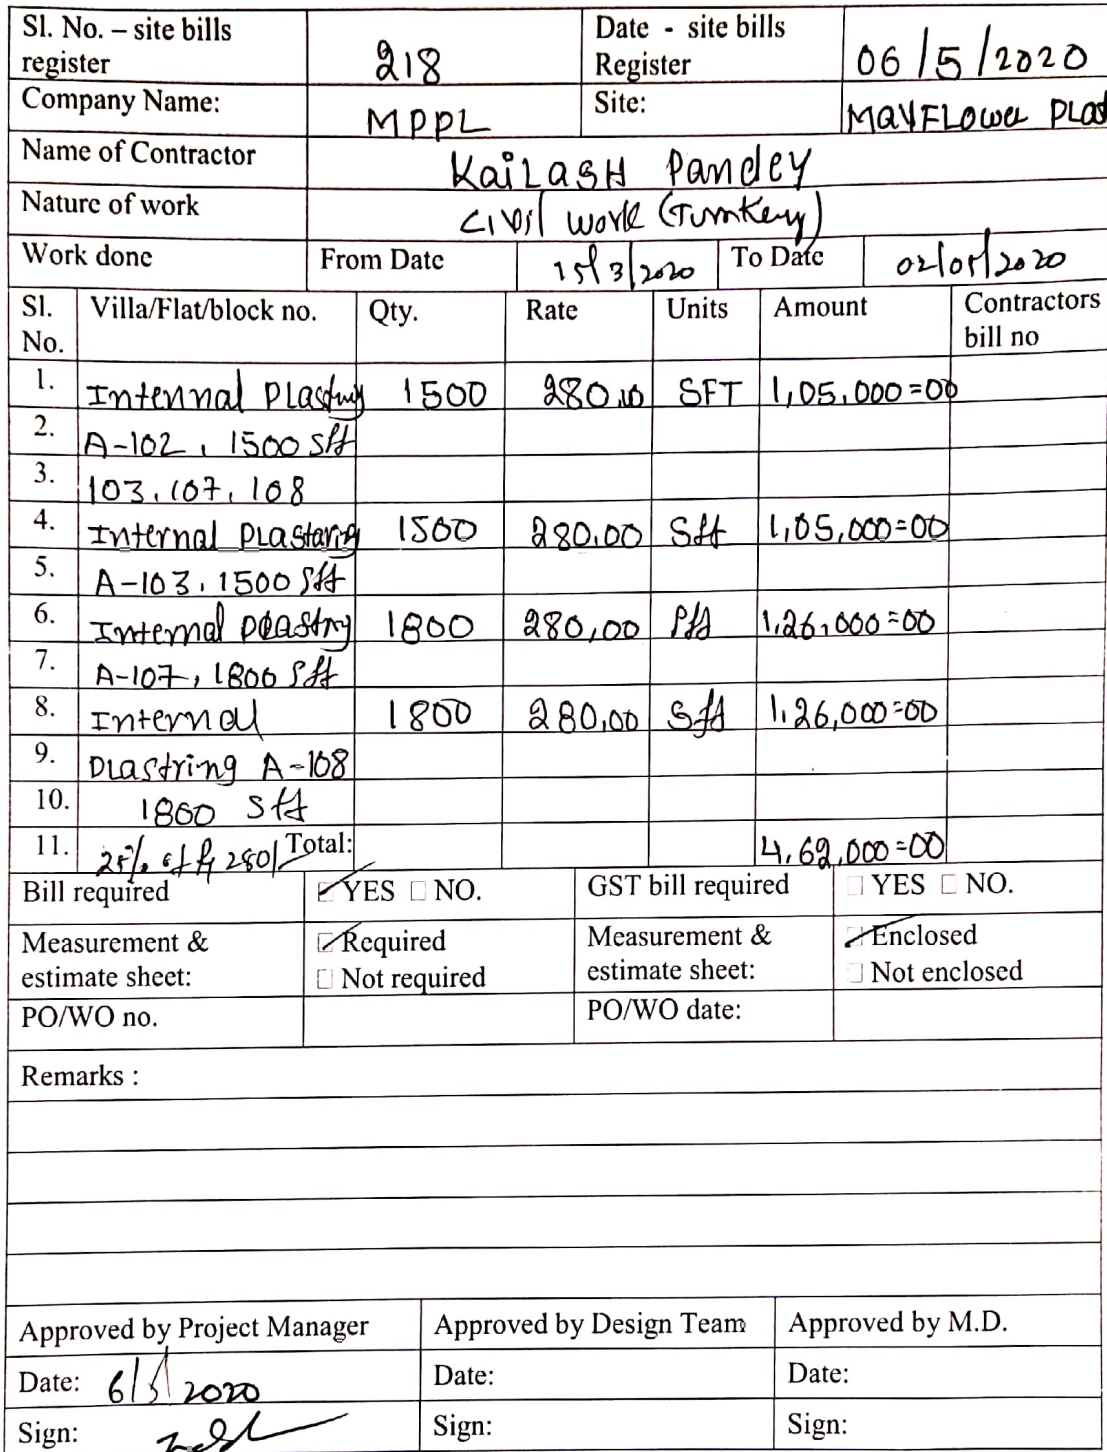 Sl. No. – site bills register 218 Date - site bills Register 06/5/2020
Company Name: MPPL Site: MAYFLOWER PLAT
Name of Contractor KAILASH Pandey
Nature of work Civil work (Turnkey)
Work done From Date 15/3/2020 To Date 02/05/2020
Sl. No. Villa/Flat/block no. Qty. Rate Units Amount Contractors bill no
1. Internal Plastring 1500 280.00 SFT 1,05,000=00
2. A-102, 1500 sft
3. 103, 107, 108
4. Internal Plastaring 1500 280.00 Sft 1,05,000=00
5. A-103, 1500 sft
6. Internal Plastring 1800 280,00 Sft 1,26,000=00
7. A-107, 1800 sft
8. Internal 1800 280,00 Sft 1,26,000=00
9. Plastring A-108
10. 1800 sft
11. 25% of 280/ Total: 4,62,000=00
Bill required YES NO. GST bill required YES NO.
Measurement & estimate sheet: Required Measurement & estimate sheet: Enclosed
Not required Not enclosed
PO/WO no. PO/WO date:
Remarks :
Approved by Project Manager Approved by Design Team Approved by M.D.
Date: 6/5/2020 Date: Date:
Sign: Sign: Sign: